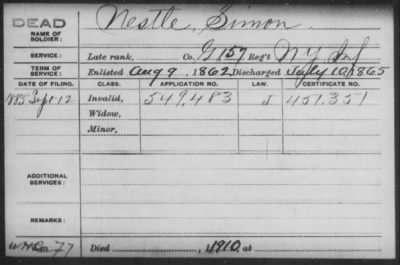 DEAD
NAME OF SOLDIER: Nestle, Simon
SERVICE: Late rank, Co. G, 157 Reg't N.Y. Inf
TERM OF SERVICE: Enlisted Aug 9, 1862, Discharged July 10, 1865
DATE OF FILING. CLASS. APPLICATION NO. LAW. CERTIFICATE NO.
1885 Sept 12 Invalid, 549,483 J 457.351
Widow,
Minor,
ADDITIONAL SERVICES:
REMARKS:
77 Died , 1910, at